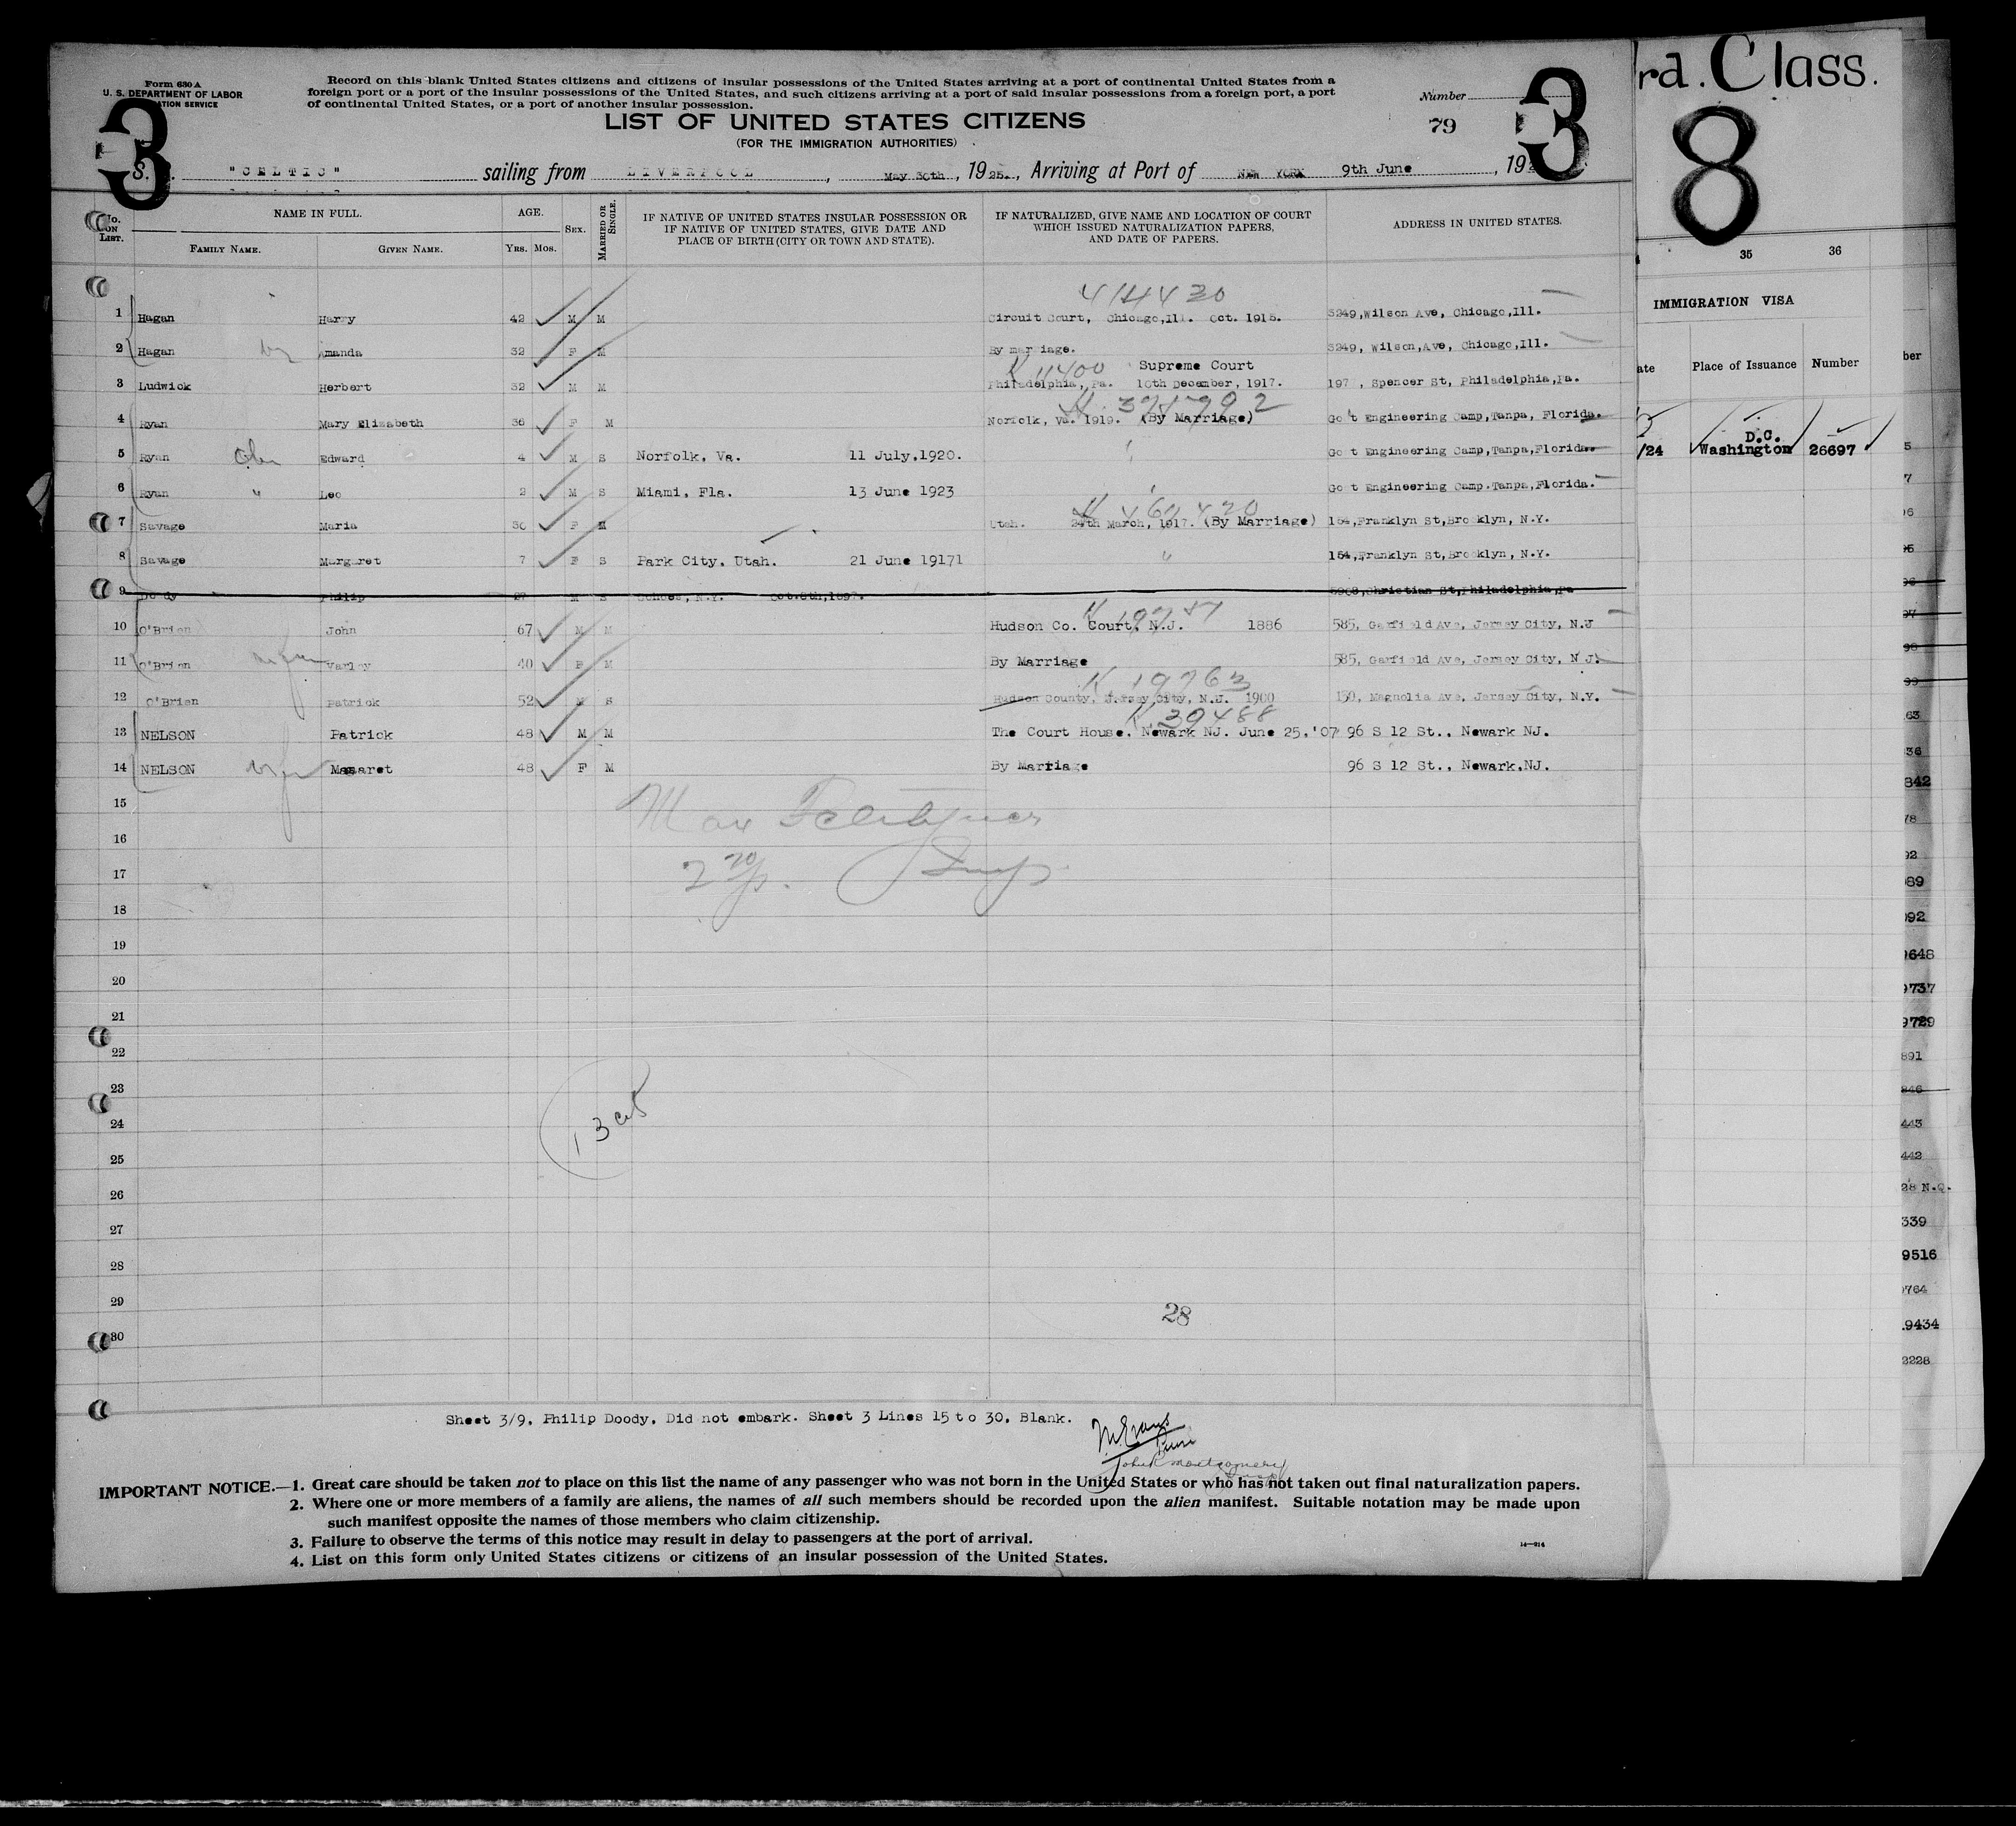 Form 630 A
U. S. DEPARTMENT OF LABOR
Record on this blank United States citizens and citizens of insular possessions of the United States arriving at a port of continental United States from a
foreign port or a port of the insular possessions of the United States, and such citizens arriving at a port of said insular possessions from a foreign port, a port
of continental United States, or a port of another insular possession.
LIST OF UNITED STATES CITIZENS
(FOR THE IMMIGRATION AUTHORITIES)
Number
79
3
3
S. "CELTIC" sailing from LIVERPOOL, May 30th, 1925., Arriving at Port of NEW YORK 9th June, 19
No. ON LIST. NAME IN FULL. AGE. SEX. MARRIED OR SINGLE.
FAMILY NAME. GIVEN NAME. YRS. MOS.
IF NATIVE OF UNITED STATES INSULAR POSSESSION OR
IF NATIVE OF UNITED STATES, GIVE DATE AND
PLACE OF BIRTH (CITY OR TOWN AND STATE).
IF NATURALIZED, GIVE NAME AND LOCATION OF COURT
WHICH ISSUED NATURALIZATION PAPERS,
AND DATE OF PAPERS.
ADDRESS IN UNITED STATES.
414420
1 Hagan Harry 42 M M Circuit Court, Chicago,Ill. Oct. 1915. 3249,Wilson Ave, Chicago,Ill.
2 Hagan Amanda 32 F M By marriage. 3249, Wilson,Ave, Chicago,Ill.
K 11400 Supreme Court
3 Ludwick Herbert 32 M M Philadelphia, Pa. 10th December, 1917. 197 , Spencer St, Philadelphia,Pa.
4 Ryan Mary Elizabeth 36 F M Norfolk, Va. 1919. (By Marriage) Go't Engineering Camp,Tanpa, Florida.
5 Ryan Edward 4 M S Norfolk, Va. 11 July,1920. Go t Engineering Camp,Tanpa,Florida.
6 Ryan " Leo 2 M S Miami, Fla. 13 June 1923 Go t Engineering Camp.Tanpa,Florida.
7 Savage Maria 30 F M Utah. 24th March, 1917. (By Marriage) 154,Franklyn St,Brooklyn, N.Y.
8 Savage Margaret 7 F S Park City, Utah. 21 June 19171 " 154,Franklyn St,Brooklyn, N.Y.
9 Doody Philip 27 M S Cohoes, N.Y. Oct.8th,1897. 5908,Christian St,Philadelphia,Pa
10 O'Brien John 67 M M Hudson Co. Court, N.J. 1886 585, Garfield Ave, Jersey City, N.J
11 O'Brien Varley 40 F M By Marriage 585, Garfield Ave, Jersey City, N J.
K 19763
12 O'Brien Patrick 52 M S Hudson County, Jersey City, N.J. 1900 130, Magnolia Ave, Jersey City, N.Y.
K 39488
13 NELSON Patrick 48 M M The Court House, Newark NJ. June 25,'07 96 S 12 St., Newark NJ.
14 NELSON Maaaret 48 F M By Marriage 96 S 12 St., Newark.NJ.
15
16
17
18
19
20
21
22
23
24
25
26
27
28
29
30
28
Sheet 3/9, Philip Doody, Did not embark. Sheet 3 Lines 15 to 30, Blank.
John R Montgomery
IMPORTANT NOTICE.—1. Great care should be taken not to place on this list the name of any passenger who was not born in the United States or who has not taken out final naturalization papers.
2. Where one or more members of a family are aliens, the names of all such members should be recorded upon the alien manifest. Suitable notation may be made upon
such manifest opposite the names of those members who claim citizenship.
3. Failure to observe the terms of this notice may result in delay to passengers at the port of arrival.
4. List on this form only United States citizens or citizens of an insular possession of the United States.
rd. Class.
8
35 36
IMMIGRATION VISA
ate Place of Issuance Number
/24 D.C. Washington 26697
ber
9516
9434
2228